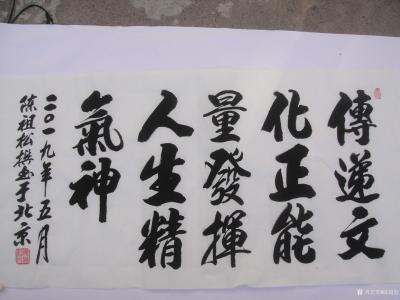 傳递文
化正能
量發揮
人生精
氣神
二〇一九年五月
陈祖松撰书于北京